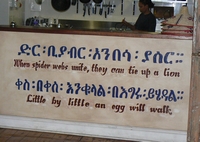 ድር ፡ ቢያብር ፡ አንበሳ ፡ ያስር ።
When spider webs unite, they can tie up a lion
ቀስ ፡ በቀስ ፡ እንቁላል ፡ በእግሩ ፡ ይሄዳል ።
Little by little an egg will walk.